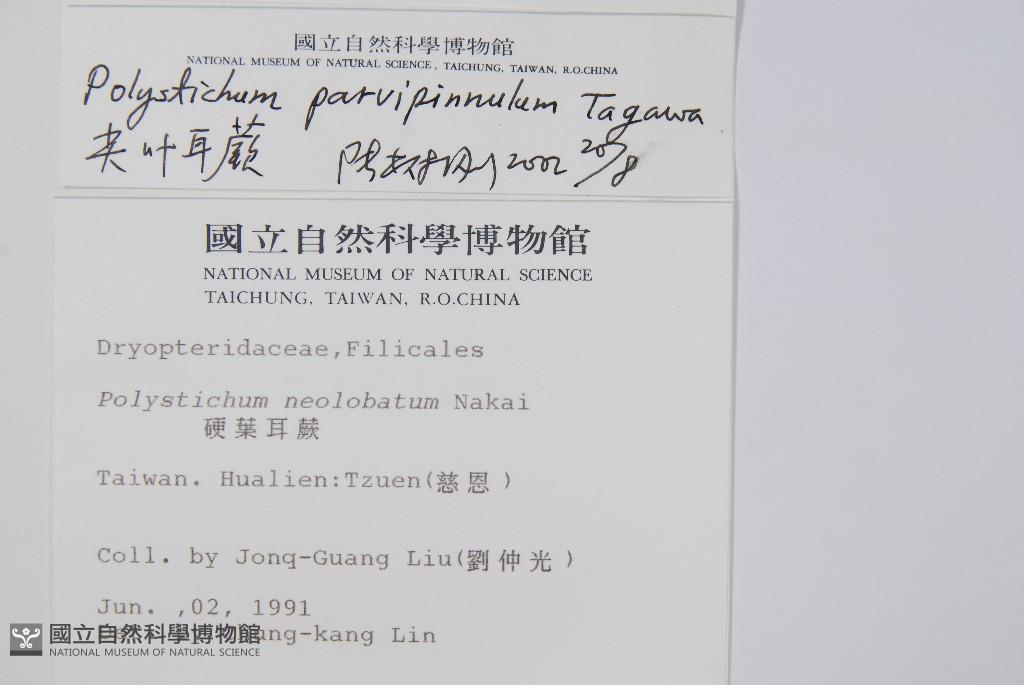 國立自然科學博物館
NATIONAL MUSEUM OF NATURAL SCIENCE, TAICHUNG, TAIWAN, R.O.CHINA
Polystichum parvipinnulum Tagawa
尖叶耳蕨 2002 20/8
國立自然科學博物館
NATIONAL MUSEUM OF NATURAL SCIENCE
TAICHUNG, TAIWAN, R.O.CHINA
Dryopteridaceae,Filicales
Polystichum neolobatum Nakai
硬葉耳蕨
Taiwan. Hualien:Tzuen(慈恩)
Coll. by Jonq-Guang Liu(劉仲光)
Jun. ,02, 1991
ung-kang Lin
國立自然科學博物館
NATIONAL MUSEUM OF NATURAL SCIENCE